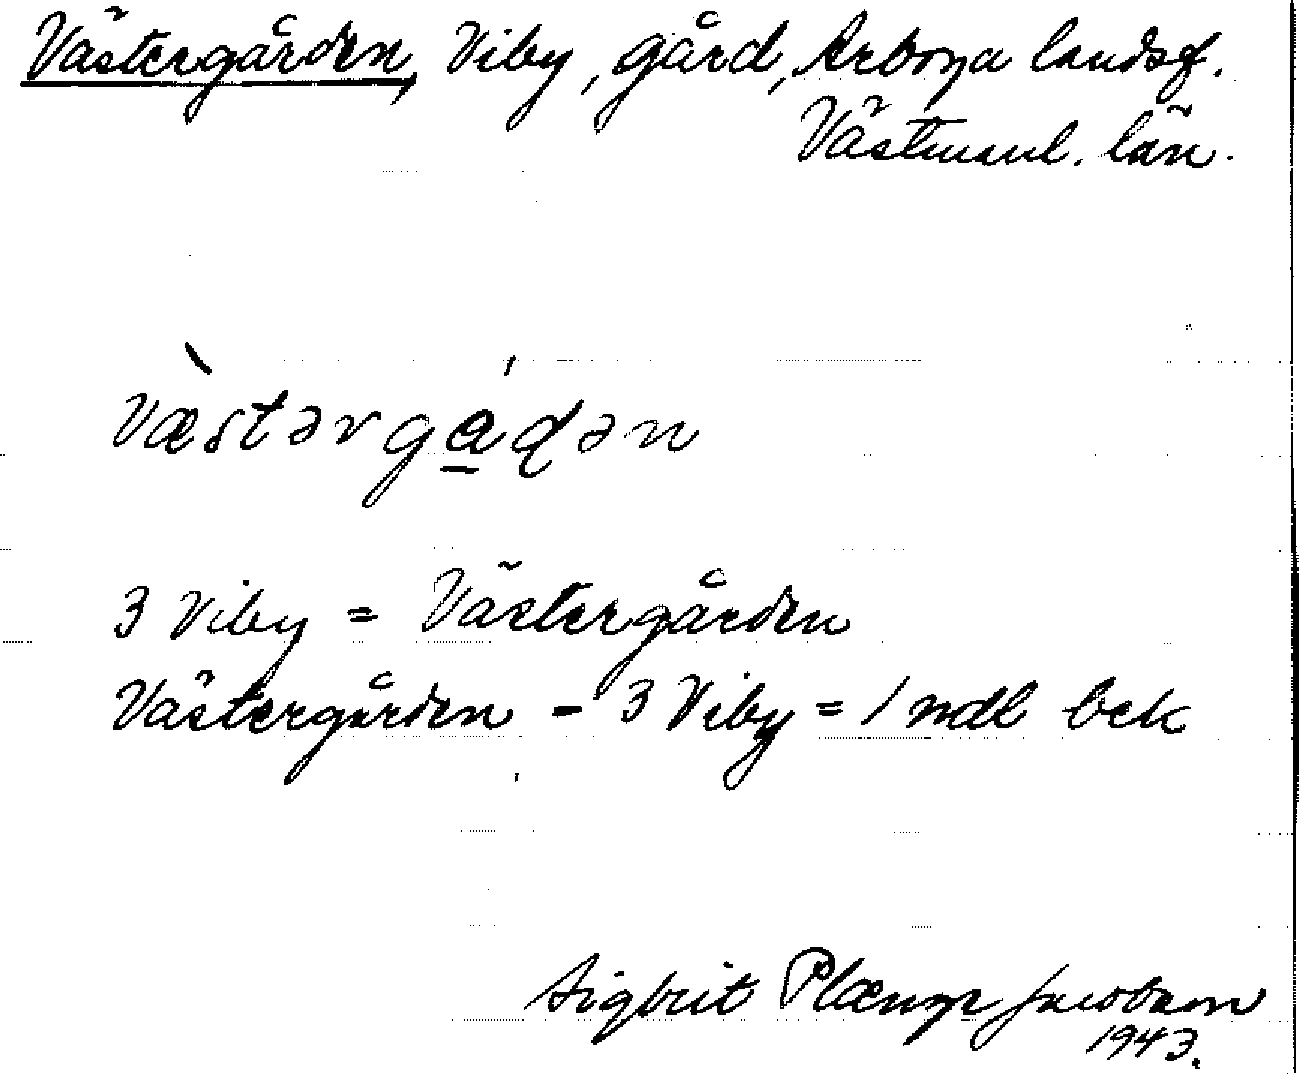 Västergården, Viby, gård, Arboga landsf.
Västmanl. län.
væ̀stərgá̱ḍən
3 Viby = Västergården
Västergården - 3 Viby = 1 mdl bek
Sigbrit Plænge Jacobson
1943.